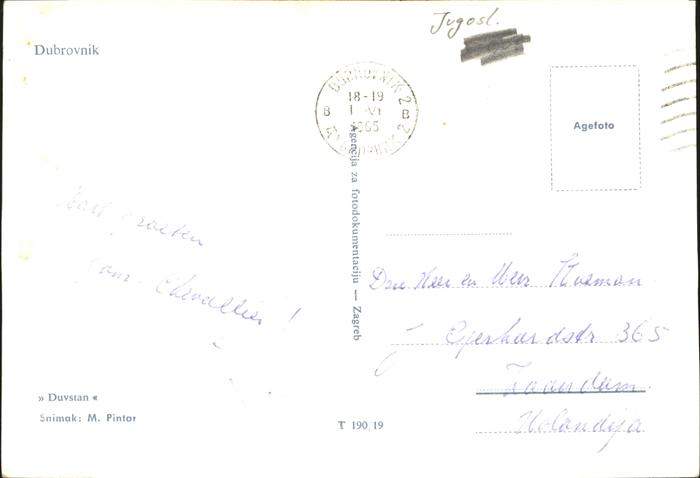 Jugosl.
Dubrovnik
DUBROVNIK 2
18-19
B 1 VI B
1965
Agefoto
Agencija za fotodokumentaciju — Zagreb
Hart. groeten
fam. Chevallier!
Den Heer en Mevr
365
Zaandam.
Holandija
» Duvstan «
Snimak: M. Pintar
T 190/19